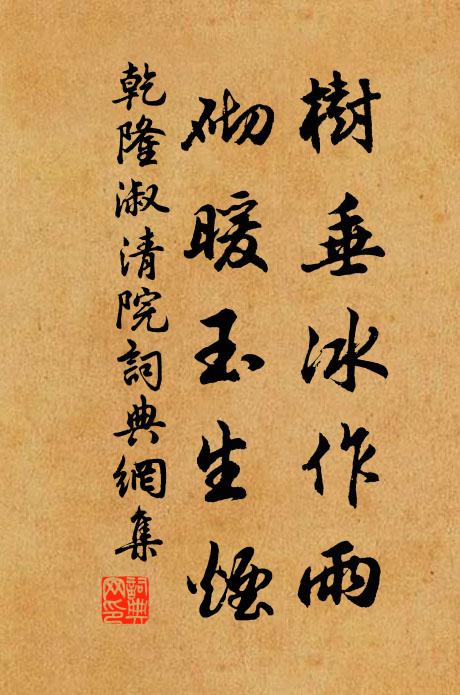 樹垂冰作雨
砌暖玉生煙
乾隆淑清院詞典網集
詞典网印